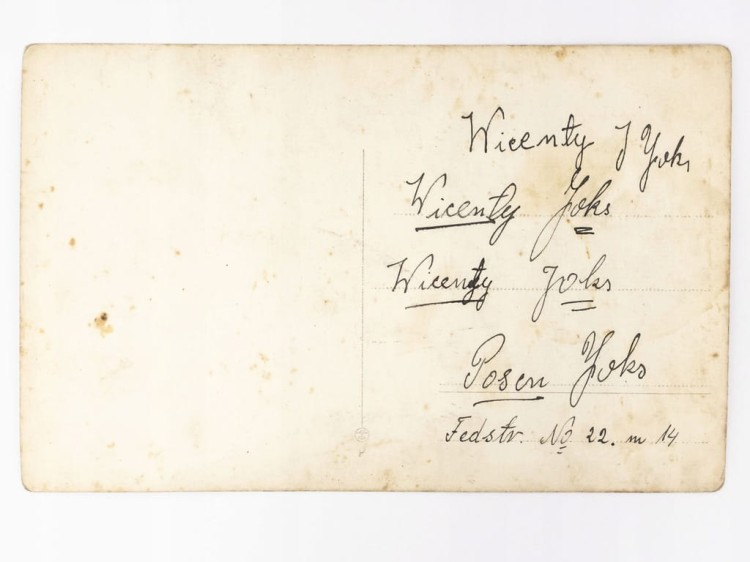 Wicenty J Yoks
Wicenty Joks
Wicenty Joks
Posen Yoks
Fedstr. No 22. m 14